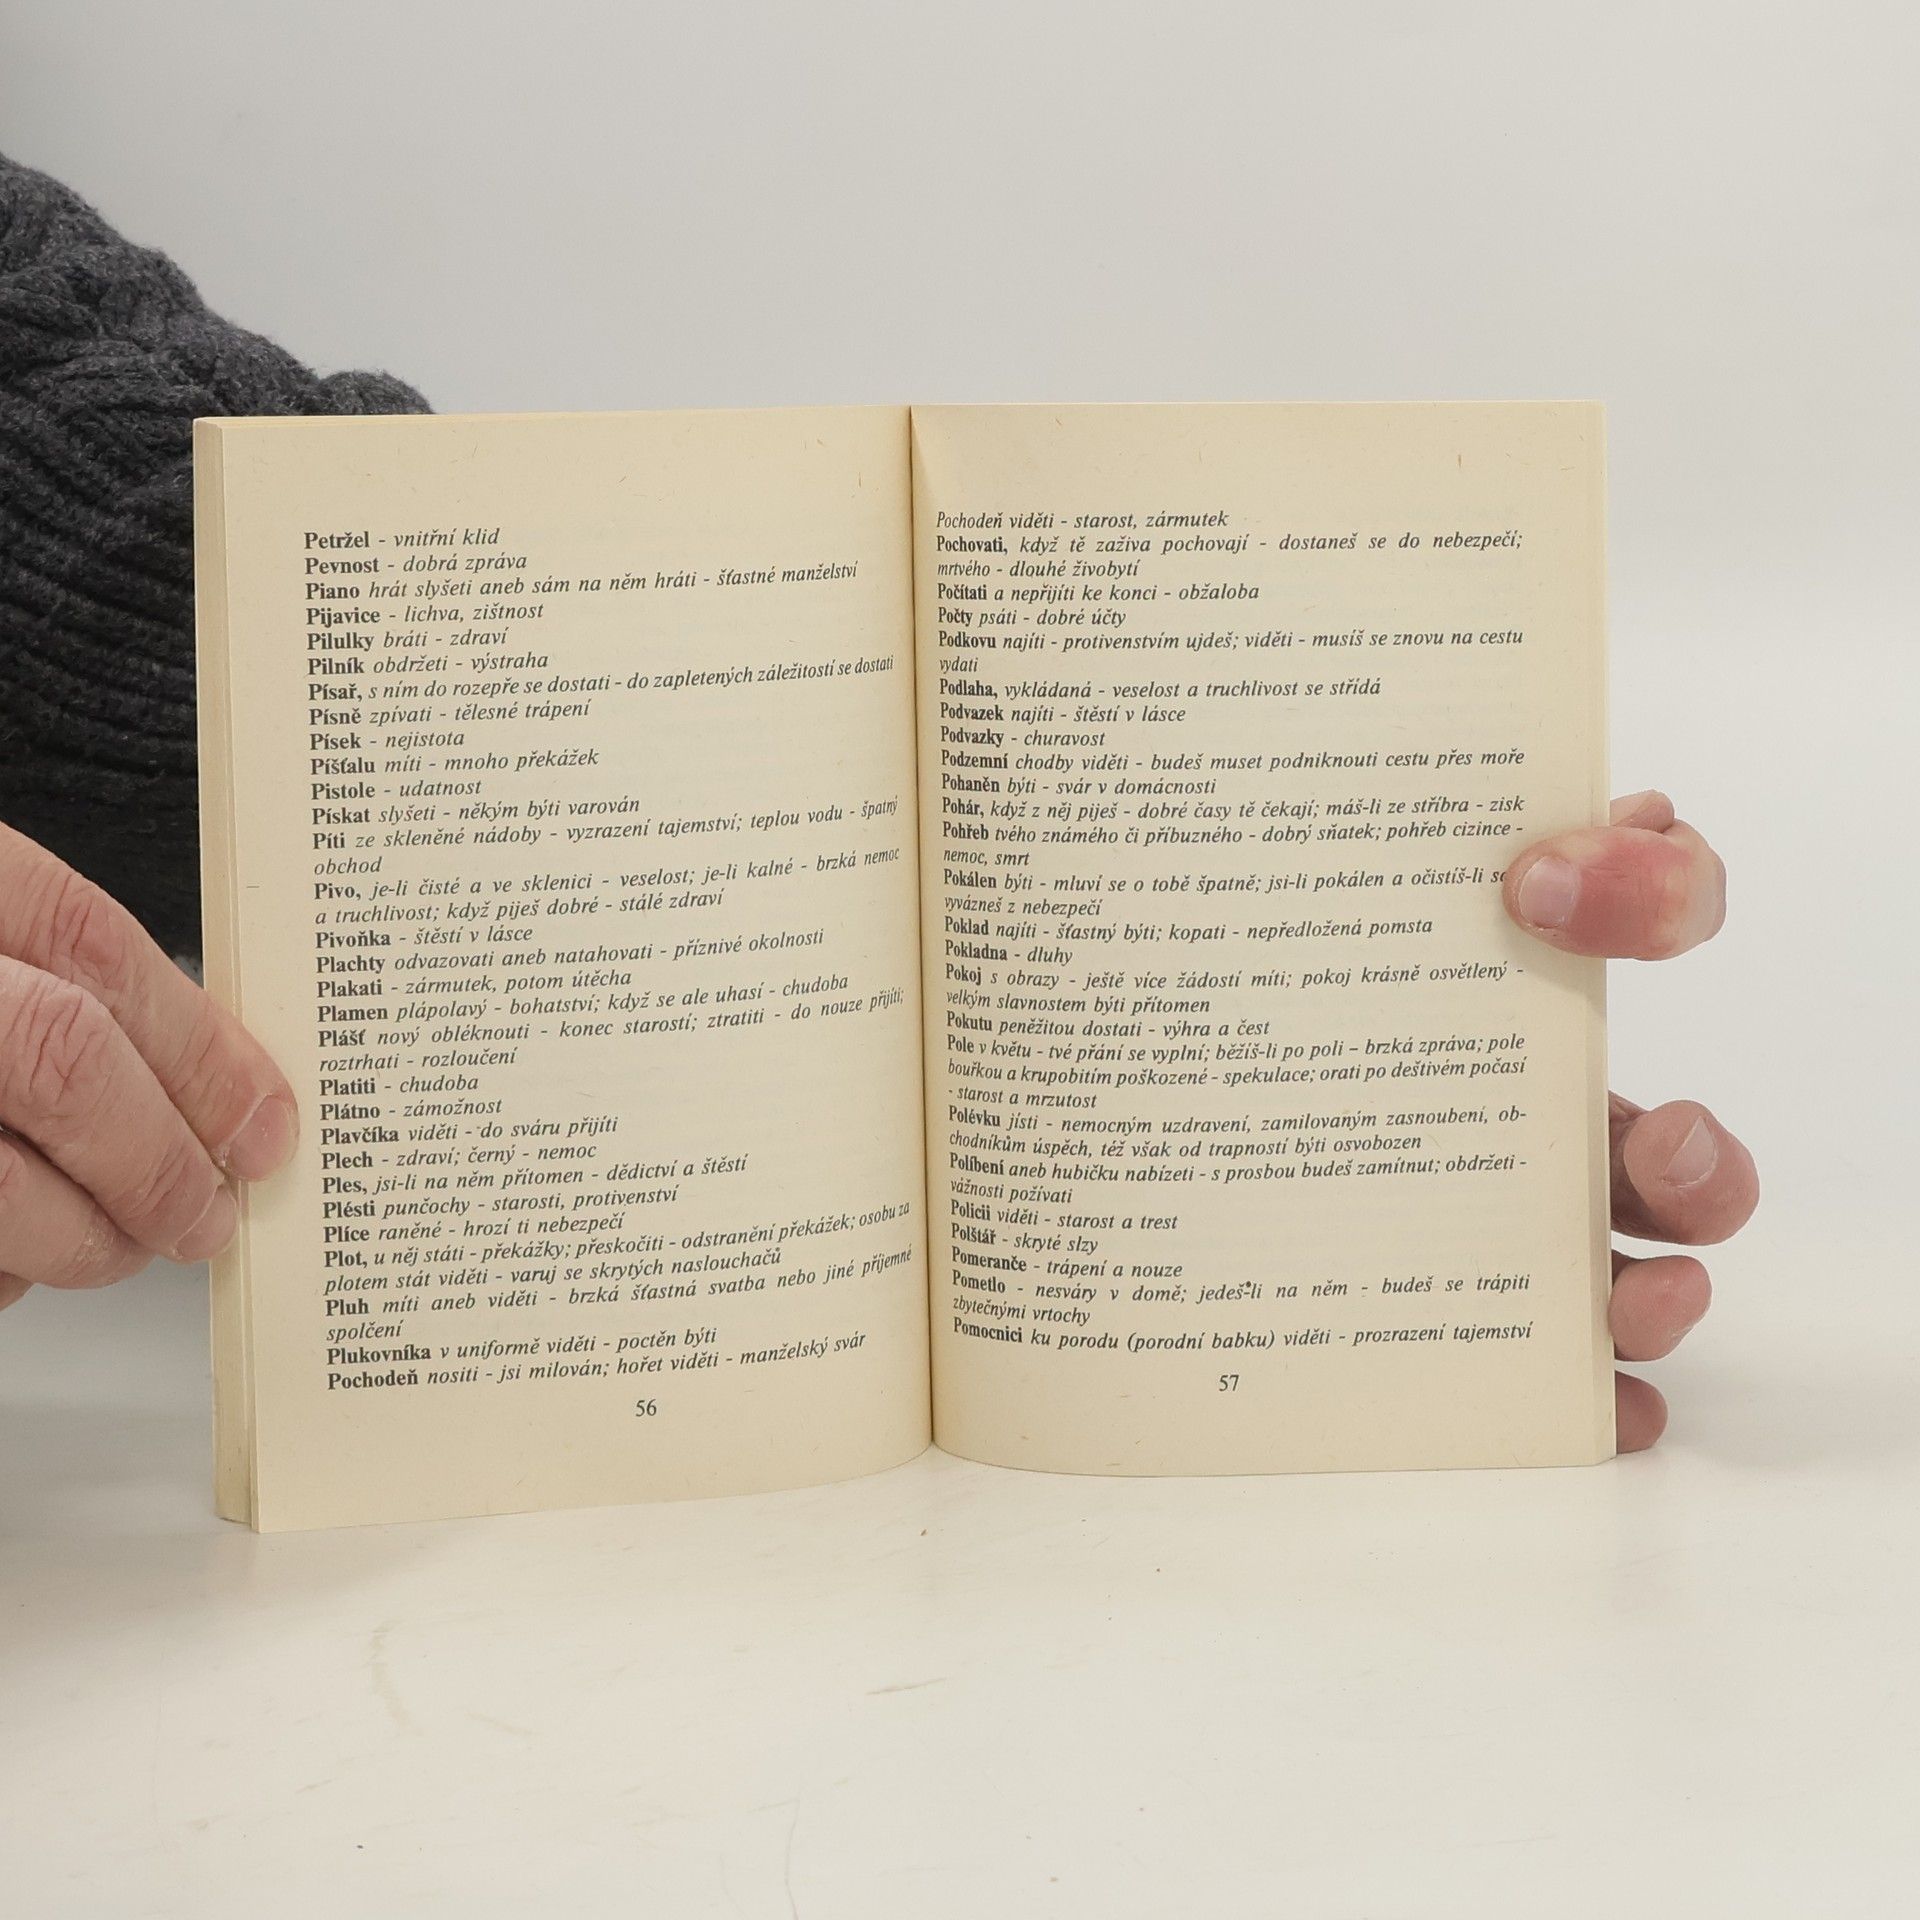 Petržel - vnitřní klid
Pevnost - dobrá zpráva
Piano hrát slyšeti aneb sám na něm hráti - šťastné manželství
Pijavice - lichva, zištnost
Pilulky bráti - zdraví
Pilník obdržeti - výstraha
Písař, s ním do rozepře se dostati - do zapletených záležitostí se dostati
Písně zpívati - tělesné trápení
Písek - nejistota
Píšťalu míti - mnoho překážek
Pistole - udatnost
Pískat slyšeti - někým býti varován
Píti ze skleněné nádoby - vyzrazení tajemství; teplou vodu - špatný
obchod
Pivo, je-li čisté a ve sklenici - veselost; je-li kalné - brzká nemoc
a truchlivost; když piješ dobré - stálé zdraví
Pivoňka - štěstí v lásce
Plachty odvazovati aneb natahovati - příznivé okolnosti
Plakati - zármutek, potom útěcha
Plamen plápolavý - bohatství; když se ale uhasí - chudoba
Plášť nový obléknouti - konec starostí; ztratiti - do nouze přijíti;
roztrhati - rozloučení
Platiti - chudoba
Plátno - zámožnost
Plavčíka viděti - do sváru přijíti
Plech - zdraví; černý - nemoc
Ples, jsi-li na něm přítomen - dědictví a štěstí
Plésti punčochy - starosti, protivenství
Plíce raněné - hrozí ti nebezpečí
Plot, u něj státi - překážky; přeskočiti - odstranění překážek; osobu za
plotem stát viděti - varuj se skrytých naslouchačů
Pluh míti aneb viděti - brzká šťastná svatba nebo jiné příjemné
spolčení
Plukovníka v uniformě viděti - poctěn býti
Pochodeň nositi - jsi milován; hořet viděti - manželský svár
56
Pochodeň viděti - starost, zármutek
Pochovati, když tě zaživa pochovají - dostaneš se do nebezpečí;
mrtvého - dlouhé živobytí
Počítati a nepřijíti ke konci - obžaloba
Počty psáti - dobré účty
Podkovu najíti - protivenstvím ujdeš; viděti - musíš se znovu na cestu
vydati
Podlaha, vykládaná - veselost a truchlivost se střídá
Podvazek najíti - štěstí v lásce
Podvazky - churavost
Podzemní chodby viděti - budeš muset podniknouti cestu přes moře
Pohaněn býti - svár v domácnosti
Pohár, když z něj piješ - dobré časy tě čekají; máš-li ze stříbra - zisk
Pohřeb tvého známého či příbuzného - dobrý sňatek; pohřeb cizince -
nemoc, smrt
Pokálen býti - mluví se o tobě špatně; jsi-li pokálen a očistíš-li
vyvázneš z nebezpečí
Poklad najíti - šťastný býti; kopati - nepředložená pomsta
Pokladna - dluhy
Pokoj s obrazy - ještě více žádostí míti; pokoj krásně osvětlený -
velkým slavnostem býti přítomen
Pokutu peněžitou dostati - výhra a čest
Pole v květu - tvé přání se vyplní; běžíš-li po poli – brzká zpráva; pole
bouřkou a krupobitím poškozené - spekulace; orati po deštivém počasí
- starost a mrzutost
Polévku jísti - nemocným uzdravení, zamilovaným zasnoubení, ob-
chodníkům úspěch, též však od trapností býti osvobozen
Políbení aneb hubičku nabízeti - s prosbou budeš zamítnut; obdržeti -
vážnosti požívati
Policii viděti - starost a trest
Polštář - skryté slzy
Pomeranče - trápení a nouze
Pometlo - nesváry v domě; jedeš-li na něm - budeš se trápiti
zbytečnými vrtochy
Pomocnici ku porodu (porodní babku) viděti - prozrazení tajemství
57